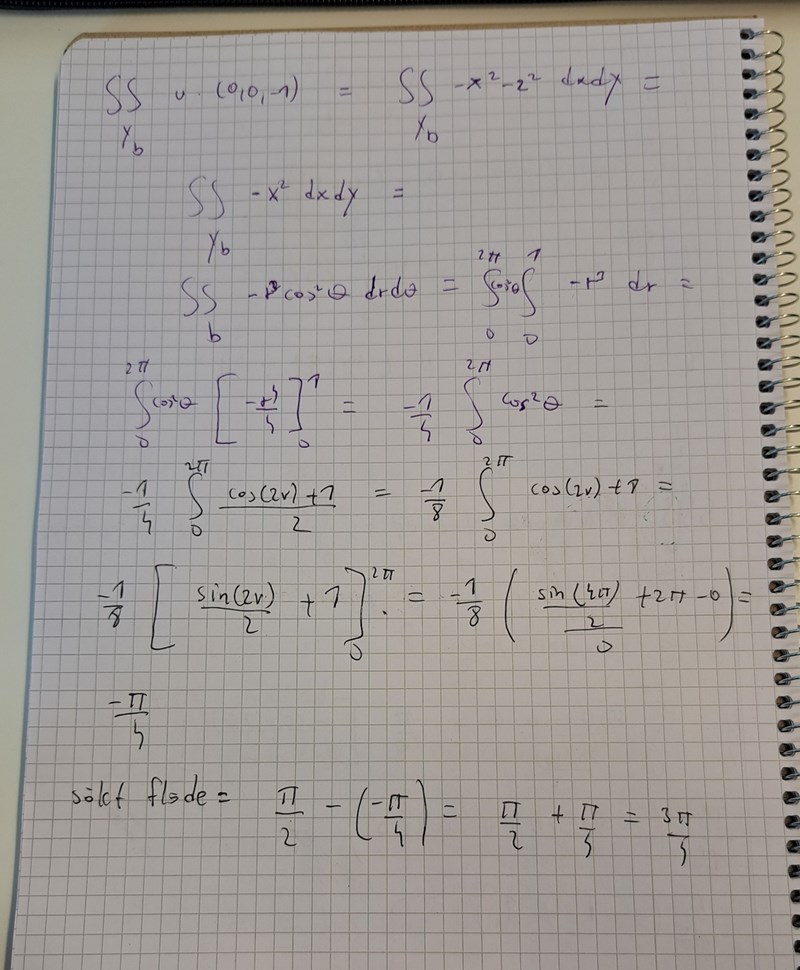 ∬_{Y_b} u · (0,0,-1) = ∬_{Y_b} -x² - z² dxdy =
∬_{Y_b} -x² dxdy =
∬_b -r³cos²θ drdθ = ∫_0^{2π} cos²θ ∫_0^1 -r³ dr =
∫_0^{2π} cos²θ [-r⁴/4]_0^1 = -1/4 ∫_0^{2π} cos²θ =
-1/4 ∫_0^{2π} (cos(2v)+1)/2 = -1/8 ∫_0^{2π} cos(2v)+1 =
-1/8 [sin(2v)/2 + 1]_0^{2π} = -1/8 (sin(4π)/2 + 2π - 0) =
0
-π/4
sökt flöde = π/2 - (-π/4) = π/2 + π/4 = 3π/4